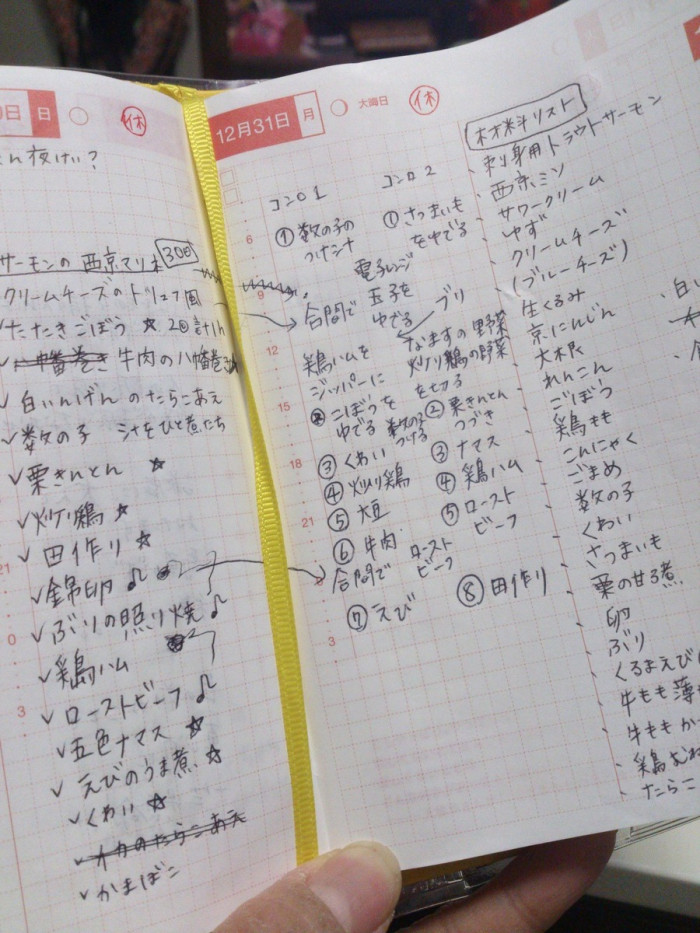 日 日
休
夜けい?
サーモンの西京マリネ 30日
クリームチーズのトリュフ風
たたきごぼう ☆ 2回計1h
牛肉の八幡巻き
白いんげんのたらこあえ
数の子 汁をひと煮たち
栗きんとん ☆
炒り鶏 ☆
田作り ☆
錦卵 ♪
ぶりの照り焼 ♪
鶏ハム
ローストビーフ ♪
五色ナマス ☆
えびのうま煮 ☆
くわい ☆
イカのたらこあえ
かまぼこ
21
0
3
12月31日 月 大晦日
休
コンロ1
①数の子の
つけ汁
合間で
鶏ハムを
ジッパーに
②ごぼうを
ゆでる
③くわい
④炒り鶏
⑤大豆
⑥牛肉
合間で ローストビーフ
⑦えび
コンロ2
①さつまいも
をゆでる
電子レンジ
玉子を
ゆでる
ブリ
なますの野菜
炒り鶏の野菜
を切る
数の子
つける
②栗きんとん
つづき
③ナマス
④鶏ハム
⑤ロースト
ビーフ
⑧田作り
6
9
12
15
18
21
3
材料リスト
刺身用トラウトサーモン
西京ミソ
サワークリーム
ゆず
クリームチーズ
(ブルーチーズ)
生くるみ
京にんじん
大根
れんこん
ごぼう
鶏もも
こんにゃく
ごまめ
数の子
くわい
さつまいも
栗の甘ろ煮
卵
ぶり
くるまえび
牛もも薄
牛ももか
鶏むね
たらこ
白い